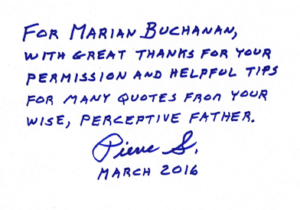 FOR MARIAN BUCHANAN,
WITH GREAT THANKS FOR YOUR
PERMISSION AND HELPFUL TIPS
FOR MANY QUOTES FROM YOUR
WISE, PERCEPTIVE FATHER.
Pierre S.
MARCH 2016